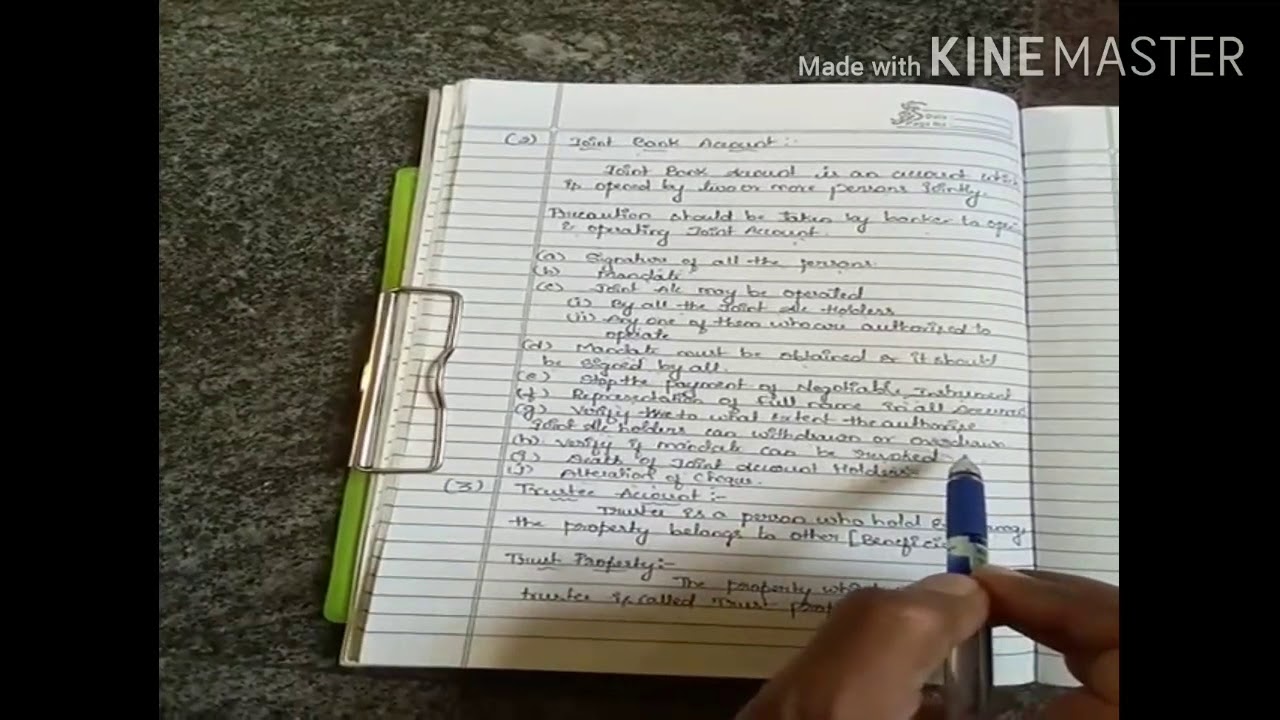 Made with KINEMASTER
Date
Page No
(2) Joint Bank Account :-
Joint Bank Account is an account which
is opened by two or more persons jointly.
Precaution should be taken by banker to open
& operating Joint Account.
(a) Signature of all the persons.
(b) Mandate
(c) Joint A/c may be operated
(i) By all the Joint A/c Holders
(ii) Any one of them who are authorized to
operate
(d) Mandate must be obtained & it should
be signed by all.
(e) Stop the payment of Negotiable Instrument
(f) Representation of Full name in all Account
(g) Verify to what extent the authorize
Joint A/c holders can withdrawn or overdrawn
(h) Verify if mandate can be revoked
(i) Death of Joint Account Holders
(j) Alteration of Cheque.
(3) Trustee Account :-
Trustee is a person who hold
the property belongs to other
Trust Property :-
The property
trustee is called Trust